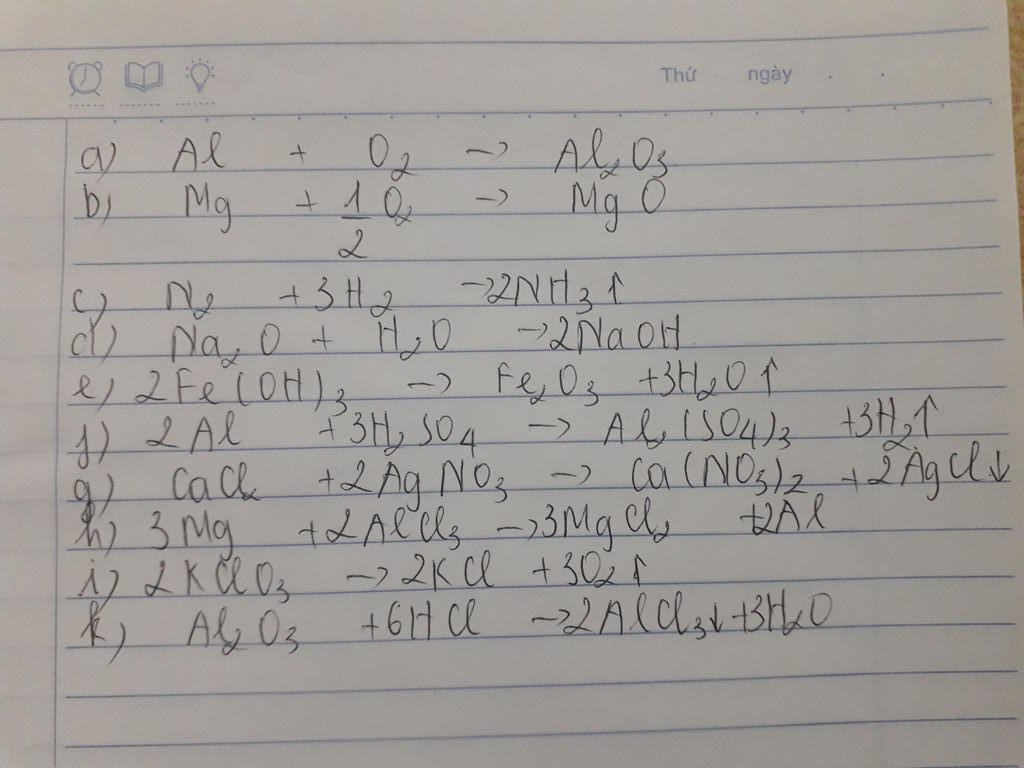 Thứ ngày . .
a) Al + O₂ → Al₂O₃
b) Mg + 1/2 O₂ → MgO
c) N₂ + 3H₂ → 2NH₃↑
d) Na₂O + H₂O → 2NaOH
e) 2Fe(OH)₃ → Fe₂O₃ + 3H₂O↑
f) 2Al + 3H₂SO₄ → Al₂(SO₄)₃ + 3H₂↑
g) CaCl₂ + 2AgNO₃ → Ca(NO₃)₂ + 2AgCl↓
h) 3Mg + 2AlCl₃ → 3MgCl₂ + 2Al
i) 2KClO₃ → 2KCl + 3O₂↑
k) Al₂O₃ + 6HCl → 2AlCl₃↓ + 3H₂O